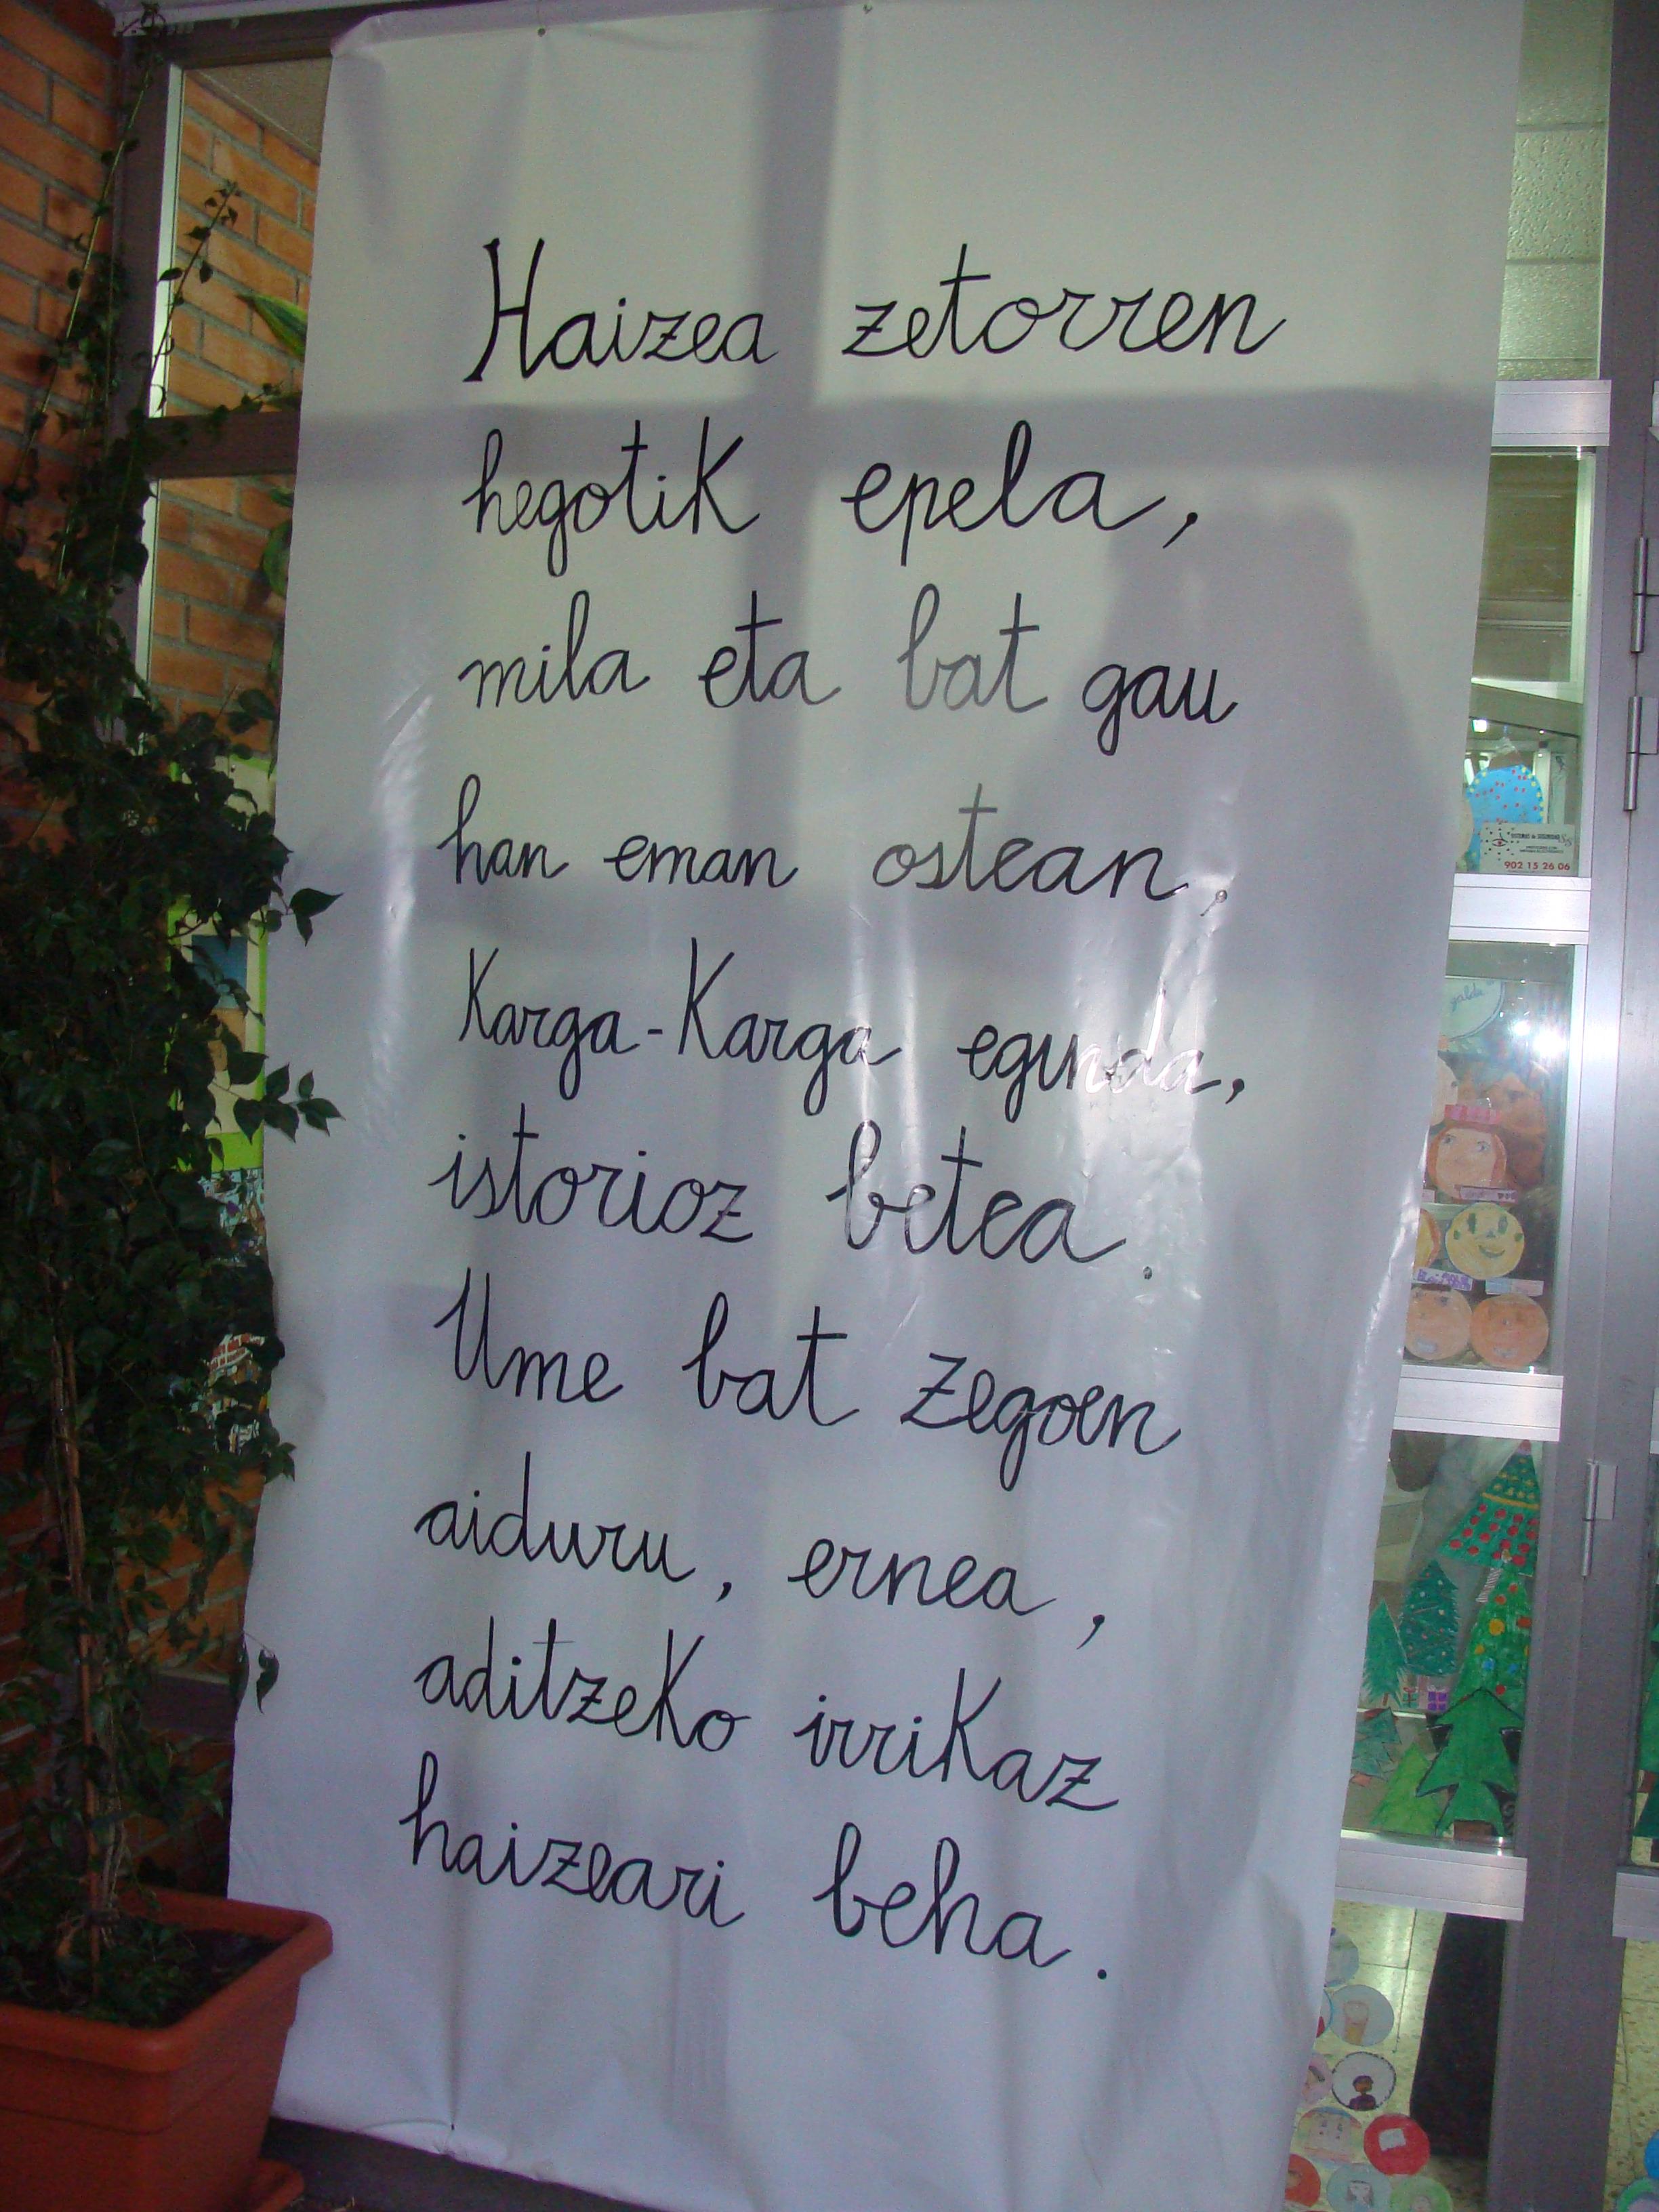 Haizea zetorren
hegotik epela,
mila eta bat gau
han eman ostean.
Karga-Karga eginda,
istorioz betea.
Ume bat zegoen
aiduru, ernea,
aditzeko irrikaz
haizeari beha.
902 15 26 06